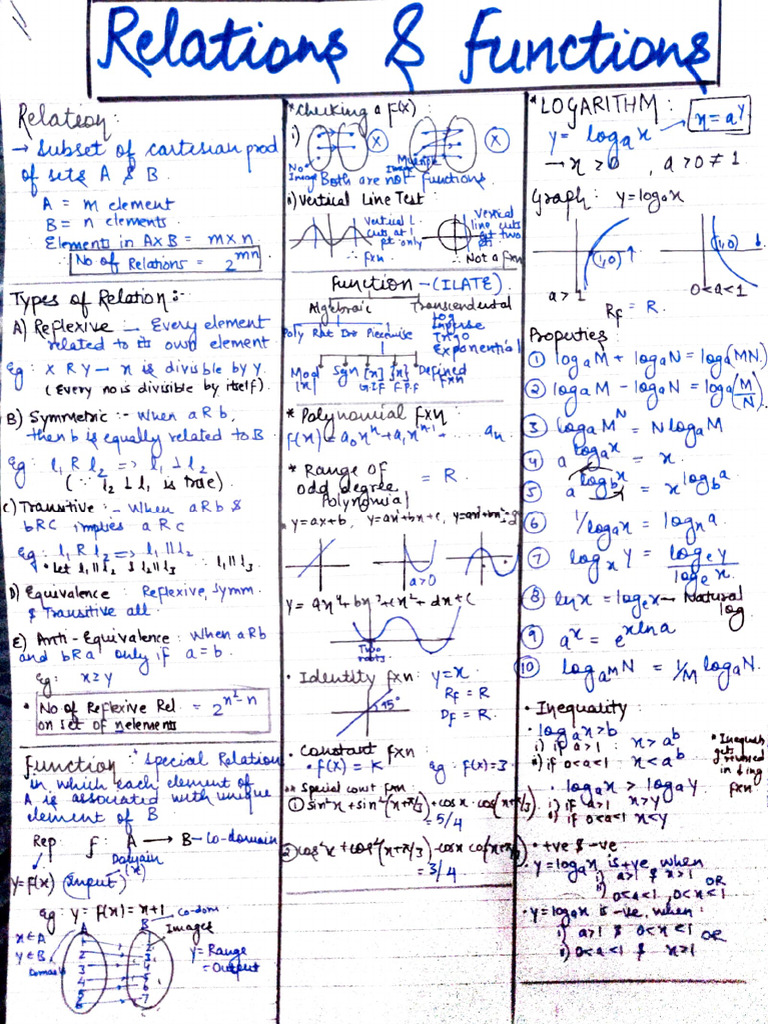 Relations & Functions
Relation:
→ Subset of cartesian prod
of sets A & B.
A = m element
B = n elements.
Elements in AxB = m x n
∴ No of Relations = 2^mn
Types of Relation:-
A) Reflexive - Every element
related to its own element
Eg: x R y → x is divisble by y.
(Every no is divisible by itself).
B) Symmetric :- When a R b,
then b is equally related to B
Eg: l₁ R l₂ => l₁ ⊥ l₂
(∵ l₂ ⊥ l₁ is true)
C) Transitive :- When aRb &
bRC implies aRc
Eg: l₁ R l₂ => l₁ || l₂
• let l₁ || l₂ & l₂ || l₃ ∴ l₁ || l₃
D) Equivalence: Reflexive, Symm.
& Transitive all.
E) Anti-Equivalence: When aRb
and bRa only if a=b.
Eg: x≥y
• No of Reflexive Rel = 2^(n²-n)
on set of n elements
Function: * special Relation
in which each element of
A is associated with unique
element of B
Rep: f: A → B → Co-domain
Domain
(x)
y=f(x) (input)
eg: y = f(x) = x+1
A B → Co-dom
Images
x∈A
y∈B
Domain
1
2
3
4
5
6
2
3
4
5
6
7
y = Range
= Output
* Checking a f(x):
i)
No Image
Image
Both are not functions.
ii) Vertical Line Test:
Vertical L cuts at 1 pt only
∴ fxn
Vertical line cuts at two pt
∴ Not a fxn
Function - (ILATE)
Algebraic Transcendental
Log
Inverse
Trigo
Exponential
Poly Rat Irr Piecewise
Mod |x| Sgn [x] G.I.F {x} F.P.F Defined fxn
* Polynomial fxn:
f(x) = a₀xⁿ + a₁xⁿ⁻¹ + .... aₙ
* Range of
odd degree = R.
Polynomial
y=ax+b,
a>0
y = ax⁴+bx³+cx²+dx+c
Two roots
• Identity fxn: y=x
45°
Rf = R
Df = R.
• Constant fxn:
• f(x) = K eg: f(x)=3
Special const fxn
① sin²x + sin²(x+π/3) + cosx·cos(x+π/3)
= 5/4
② cos²x + cos²(x+π/3) - cosx cos(x+π/3)
= 3/4
* LOGARITHM:
y = logₐx → x = a^y
→ x > 0, a > 0 ≠ 1.
Graph: y=logₐx
(1,0)
a>1
(1,0)
0<a<1
Rf = R.
Properties
① logₐM + logₐN = logₐ(MN).
② logₐM - logₐN = logₐ(M/N).
③ logₐM^N = N logₐM
④ a^(logₐx) = x.
⑤ a^(log_b x) = x^(log_b a)
⑥ 1/logₐx = logₓa.
⑦ logₓy = logₑy/logₑx.
⑧ lnx = logₑx → Natural log
⑨ a^x = e^(xlna)
⑩ log_(a^M) N = 1/M logₐN.
• Inequality
• logₐx>b
i) if a>1 : x>a^b
ii) if 0<a<1 : x<a^b
* Inequality gets reversed in ↓ing fxn
• logₐx > logₐy
i) if a>1 x>y
ii) if 0<a<1 x<y
• +ve & -ve
• y=logₐx is +ve, when
i) a>1 & x>1 OR
ii) 0<a<1, 0<x<1
• y=logₐx is -ve, when:
i) a>1 & 0<x<1 OR
ii) 0<a<1 & x>1